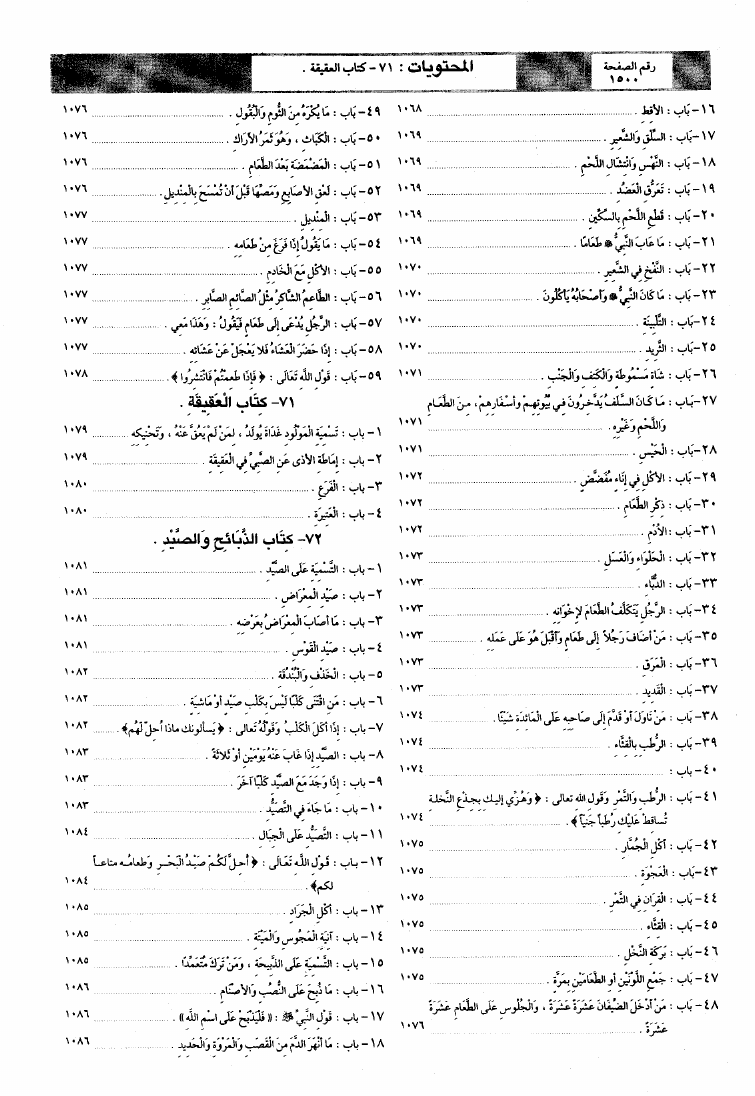 رقم الصفحة
١٥٠٠
المحتويات : ٧١- كتاب العقيقة .
١٦- بَاب : الأَقط . ١٠٦٨
١٧- بَاب : السِّلْق وَالشَّعِير . ١٠٦٩
١٨- بَاب : النَّهْس وَانْتشَال اللَّحْم . ١٠٦٩
١٩- بَاب : تَعَرُّق العَضُد . ١٠٦٩
٢٠- بَاب : قَطْع اللَّحْم بِالسكِّين . ١٠٦٩
٢١- بَاب : مَا عَابَ النَّبِيُّ ﷺ طَعَامًا . ١٠٦٩
٢٢- بَاب : النَّفْخ فِي الشَّعِير . ١٠٧٠
٢٣- بَاب : مَا كَانَ النَّبِيُّ ﷺ وَأَصْحَابُهُ يَأْكُلُونَ . ١٠٧٠
٢٤- بَاب : التَّلْبِينَة . ١٠٧٠
٢٥- بَاب : الثَّرِيد . ١٠٧٠
٢٦- بَاب : شَاة مَسْمُوطَة وَالكَتف وَالْجَنْب . ١٠٧١
٢٧- بَـاب : مَـا كَـانَ السَّلَفُ يَدَّخِرُونَ فِي بُيُوتِهِمْ وَأَسْفَارِهِمْ ، مِنَ الطَّعَامِ
وَاللَّحْمِ وَغَيْرِهِ . ١٠٧١
٢٨- بَاب : الْحَيْس . ١٠٧١
٢٩- بَاب : الأَكْل فِي إِنَاء مُفَضَّض . ١٠٧٢
٣٠- بَاب : ذِكْر الطَّعَام . ١٠٧٢
٣١- بَاب : الأُدْم . ١٠٧٢
٣٢- بَاب : الحَلْوَاء وَالعَسَل . ١٠٧٣
٣٣- بَاب : الدُّبَّاء . ١٠٧٣
٣٤- بَاب : الرَّجُل يَتَكَلَّفُ الطَّعَامَ لإِخْوَانِه . ١٠٧٣
٣٥- بَاب : مَنْ أَضَافَ رَجُلاً إِلَى طَعَام وَأَقْبَلَ هُوَ عَلَى عَمَله . ١٠٧٣
٣٦- بَاب : الْمَرَق . ١٠٧٣
٣٧- بَاب : القَديد . ١٠٧٣
٣٨- بَاب : مَنْ نَاوَلَ أَوْ قَدَّمَ إِلَى صَاحِبِه عَلَى الْمَائِدَة شَيْئًا . ١٠٧٤
٣٩- بَاب : الرُّطَب بِالقِثَّاء . ١٠٧٤
٤٠- بَاب : ١٠٧٤
٤١- بَاب : الرُّطَب وَالتَّمْر وَقَول الله تعالى : ﴿ وَهُزِّي إِلَيكِ بِجِذْعِ النَّخلةِ
تُساقِطْ عَلَيْكِ رُطَباً جَنيّاً ﴾ . ١٠٧٤
٤٢- بَاب : أَكْل الْجُمَّار . ١٠٧٥
٤٣- بَاب : العَجْوَة . ١٠٧٥
٤٤- بَاب : القِرَان فِي التَّمْر . ١٠٧٥
٤٥- بَاب : القِثَّاء . ١٠٧٥
٤٦- بَاب : بَرَكَة النَّخْل . ١٠٧٥
٤٧- بَاب : جَمْع اللَّوْنَيْن أَو الطَّعَامَيْن بِمَرَّة . ١٠٧٥
٤٨- بَاب : مَنْ أَدْخَلَ الضِّيفَانَ عَشَرَةً عَشَرَةً ، وَالْجُلُوس عَلَى الطَّعَام عَشَرَةً
عَشَرَةً . ١٠٧٦
٤٩- بَاب : مَا يُكْرَهُ مِنَ الثُّومِ وَالْبُقُول . ١٠٧٦
٥٠- بَاب : الكَبَاث ، وَهُوَ ثَمَرُ الأَرَاك . ١٠٧٦
٥١- بَاب : الْمَضْمَضَة بَعْدَ الطَّعَام . ١٠٧٦
٥٢- بَاب : لَعْق الأَصَابِع وَمَصِّهَا قَبْلَ أَنْ تُمْسَحَ بِالْمِنْدِيل . ١٠٧٦
٥٣- بَاب : الْمِنْدِيل . ١٠٧٧
٥٤- بَاب : مَا يَقُولُ إِذَا فَرَغَ مِنْ طَعَامِه . ١٠٧٧
٥٥- بَاب : الأَكْل مَعَ الْخَادِم . ١٠٧٧
٥٦- بَاب : الطَّاعِمُ الشَّاكِرُ مِثْلُ الصَّائِمِ الصَّابِر . ١٠٧٧
٥٧- بَاب : الرَّجُل يُدْعَى إِلَى طَعَام فَيَقُولُ : وَهَذَا مَعِي . ١٠٧٧
٥٨- بَاب : إِذَا حَضَرَ العَشَاءُ فَلا يَعْجَلْ عَنْ عَشَائِه . ١٠٧٧
٥٩- بَاب : قَوْل اللَّه تَعَالَى : ﴿ فَإِذَا طَعِمْتُمْ فَانْتَشِرُوا ﴾ . ١٠٧٨
٧١- كتَاب العَقيقَة .
١- باب : تَسْمِيَة الْمَوْلُود غَدَاةَ يُولَدُ ، لِمَنْ لَمْ يَعُقَّ عَنْهُ ، وَتَحْنِيكِه ١٠٧٩
٢- باب : إِمَاطَة الأَذَى عَنِ الصَّبِيِّ فِي العَقِيقَة . ١٠٧٩
٣- باب : الفَرَع . ١٠٨٠
٤- باب : العَتِيرَة . ١٠٨٠
٧٢- كتَاب الذَّبَائح وَالصَّيْد .
١- باب : التَّسْمِيَة عَلَى الصَّيْد . ١٠٨١
٢- باب : صَيْد الْمِعْرَاض . ١٠٨١
٣- باب : مَا أَصَابَ الْمِعْرَاضُ بِعَرْضِه . ١٠٨١
٤- باب : صَيْد القَوْس . ١٠٨١
٥- باب : الْخَذْف وَالْبُنْدُقَة ١٠٨٢
٦- باب : مَن اقْتَنَى كَلْبًا لَيْسَ بِكَلْبِ صَيْدٍ أَوْ مَاشِيَة . ١٠٨٢
٧- باب : إِذَا أَكَلَ الكَلْبُ وَقَوْلُهُ تَعالى : ﴿ يَسألونك ماذا أُحلّ لَهُم ﴾ . ١٠٨٢
٨- باب : الصَّيْد إِذَا غَابَ عَنْهُ يَوْمَيْن أَوْ ثَلاثَةً . ١٠٨٣
٩- باب : إِذَا وَجَدَ مَعَ الصَّيْد كَلْبًا آخَرَ . ١٠٨٣
١٠- باب : مَا جَاءَ فِي التَّصَيُّد . ١٠٨٣
١١- باب : التَّصَيُّد عَلَى الْجِبَال . ١٠٨٤
١٢- باب : قَوْل اللَّه تَعَالَى : ﴿ أُحِلَّ لَكُمْ صَيْدُ الْبَحْرِ وَطَعامُه متاعاً
لكم ﴾ . ١٠٨٤
١٣- باب : أَكْل الْجَرَاد . ١٠٨٥
١٤- باب : آنِيَة الْمَجُوس وَالْمَيْتَة . ١٠٨٥
١٥- باب : التَّسْمِيَة عَلَى الذَّبِيحَة ، وَمَنْ تَرَكَ مُتَعَمِّدًا . ١٠٨٥
١٦- باب : مَا ذُبِحَ عَلَى النُّصُب وَالأَصْنَام . ١٠٨٦
١٧- باب : قَوْل النَّبِيِّ ﷺ : (( فَلْيَذْبَحْ عَلَى اسْمِ اللَّه )) . ١٠٨٦
١٨- باب : مَا أَنْهَرَ الدَّمَ مِنَ القَصَب وَالْمَرْوَة وَالْحَدِيد . ١٠٨٦